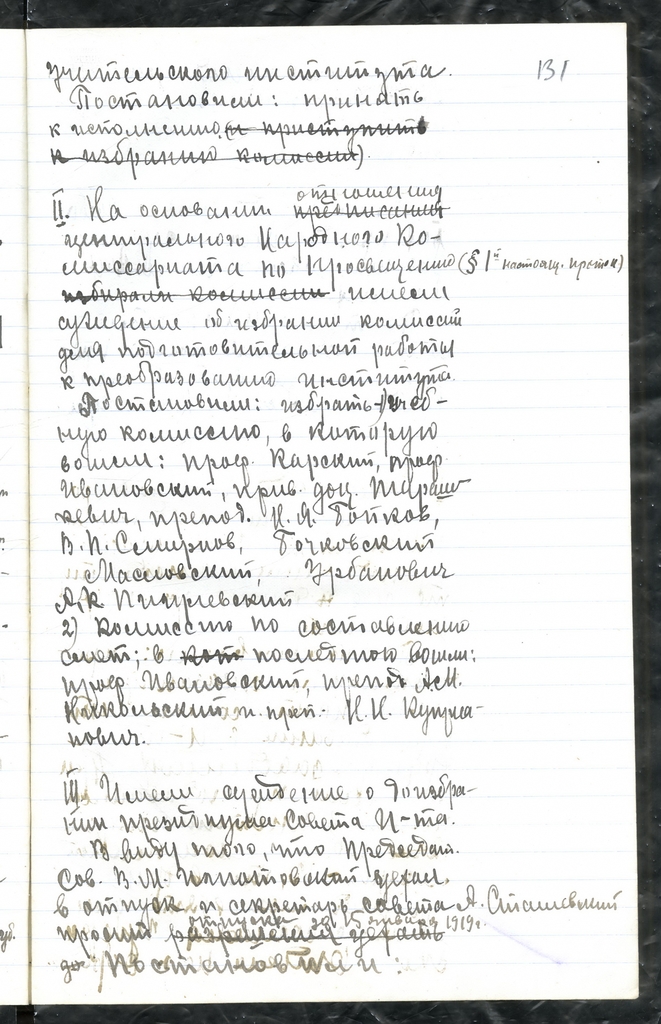 131
учительского института.
Постановили: принять
к исполнению (и приступить
к избранию комиссии).
отношения
II. На основании предписания
центрального Народного Ко-
миссариата по Просвещению (§ 1й настоящ. проток)
избирали комиссии имели
суждение об избрании комиссий
для подготовительной работы
к преобразованию института.
Постановили: избрать 1) учеб-
ную комиссию, в которую
вошли: проф. Карский, проф.
Ивановский, прив. доц. Тараш-
кевич, препод. Н. Я. Бойков,
В. П. Смирнов, Бочковский
Масловский, Урбанович
А. К.
2) Комиссию по составлению
смет; в кот последнюю вошли:
проф. Ивановский, препод. А. М.
Никольский и преп. И. И. Куприя-
нович.
III. Имели суждение о доизбра-
нии президиума Совета И-та.
В виду того, что Председат.
Сов. В. М. Игнатовский уехал
в отпуск и секретарь совета А. Сташевский
отпуска до 15 января 1919г.
просит разрешения уехать
до: Постановили: